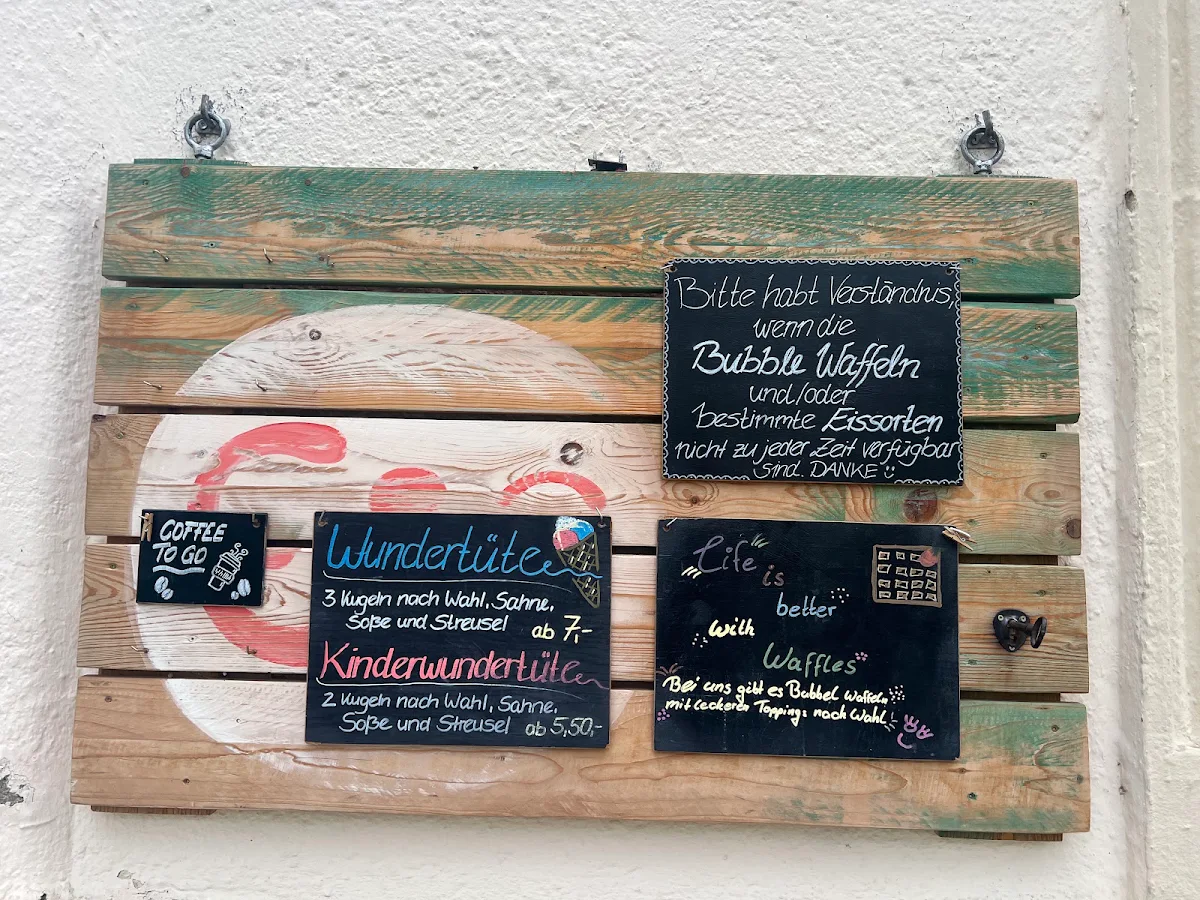 Bitte habt Verständnis,
wenn die
Bubble Waffeln
und/oder
bestimmte Eissorten
nicht zu jeder Zeit verfügbar
sind. DANKE
COFFEE
TO GO
Wundertüte
3 Kugeln nach Wahl, Sahne,
Soße und Streusel ab 7,-
Kinderwundertüte
2 Kugeln nach Wahl, Sahne,
Soße und Streusel ab 5,50,-
Life is
better
with
Waffles
Bei uns gibt es Bubbel Waffeln
mit leckeren Toppings nach Wahl